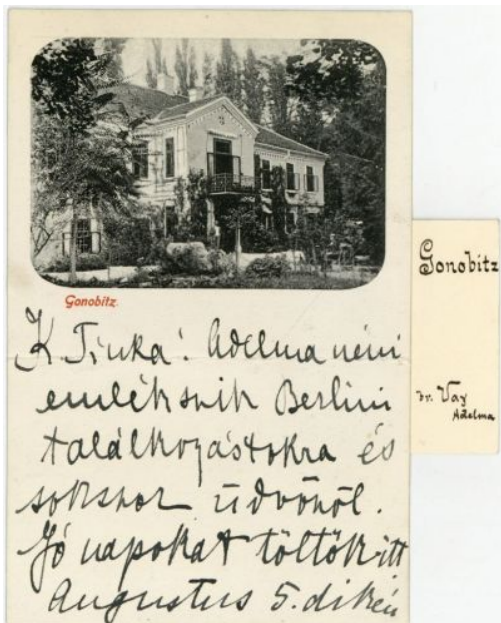 Gonobitz.
K. Tinka! Adelma néni
emlékszik Berlini
találkozástokra és
sokszor üdvözöl.
Jó napokat töltök itt
Augustus 5.dikén
Gonobitz
br. Vay
Adelma